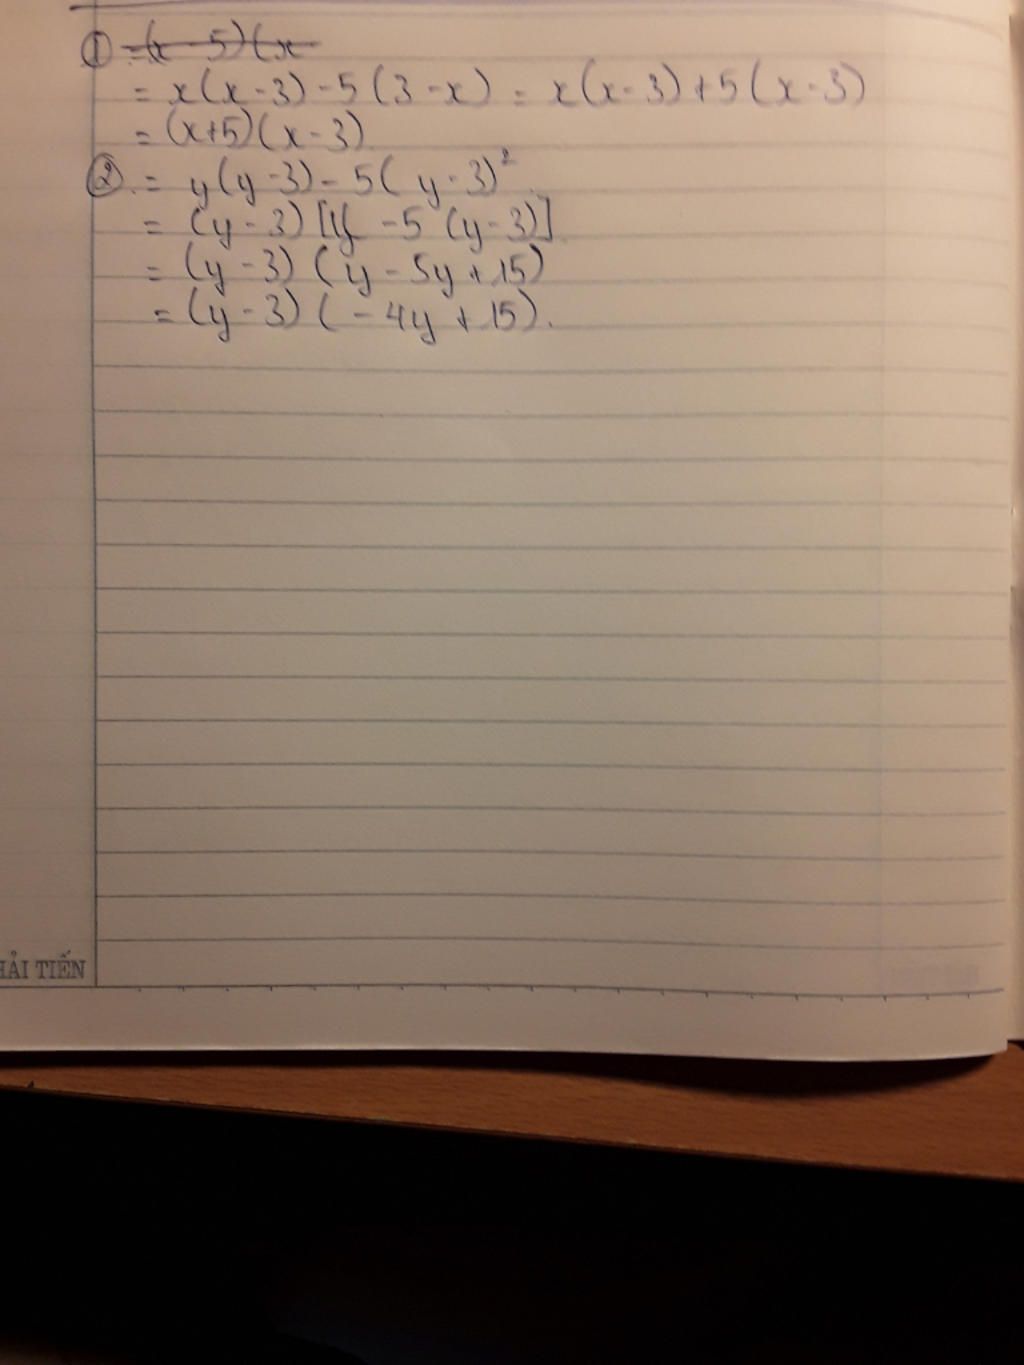 ① = (x - 5)(x
= x(x-3) - 5(3-x) = x(x-3)+5(x-3)
= (x+5)(x-3)
②. = y(y-3) - 5(y-3)²
= (y-3)[y -5 (y-3)]
= (y-3)(y - 5y + 15)
= (y-3)(-4y + 15).
HẢI TIẾN